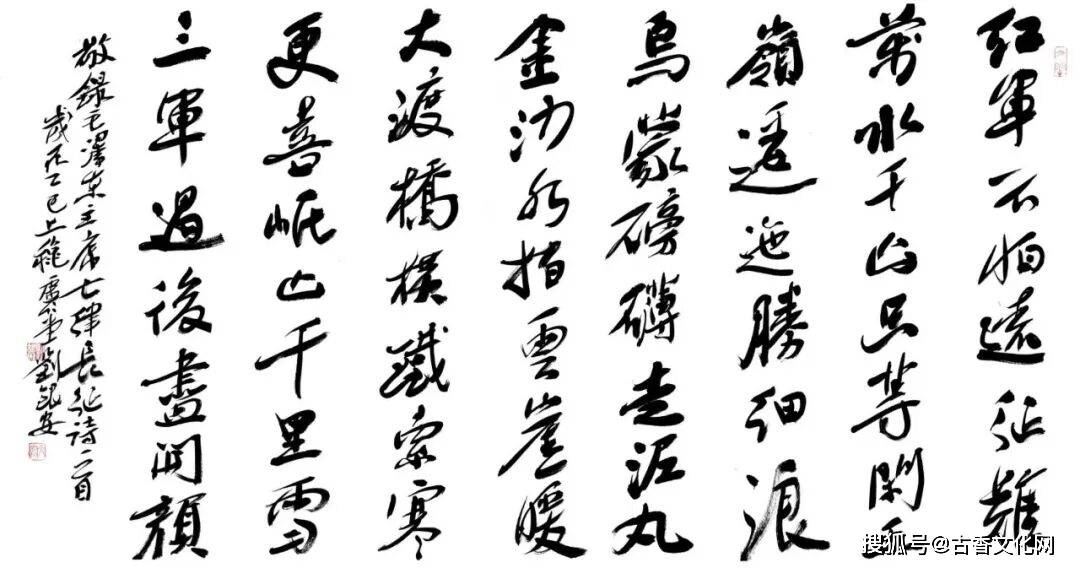 紅軍不怕遠征難
萬水千山只等閑五
嶺逶迤騰細浪
烏蒙磅礴走泥丸
金沙水拍雲崖暖
大渡橋橫鐵索寒
更喜岷山千里雪
三軍過後盡開顏
敬錄毛澤東主席七律長征詩一首
歲在乙巳上穐廣劉銀安
搜狐号@古香文化网